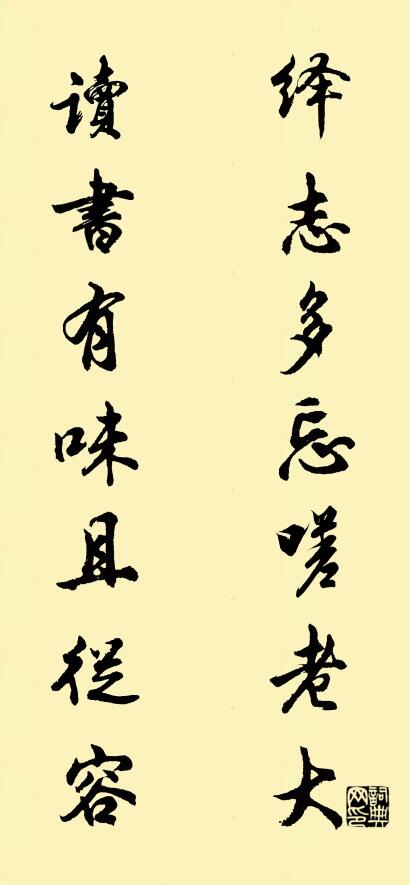 绎志多忘嗟老大
讀書有味且從容
詞典网印